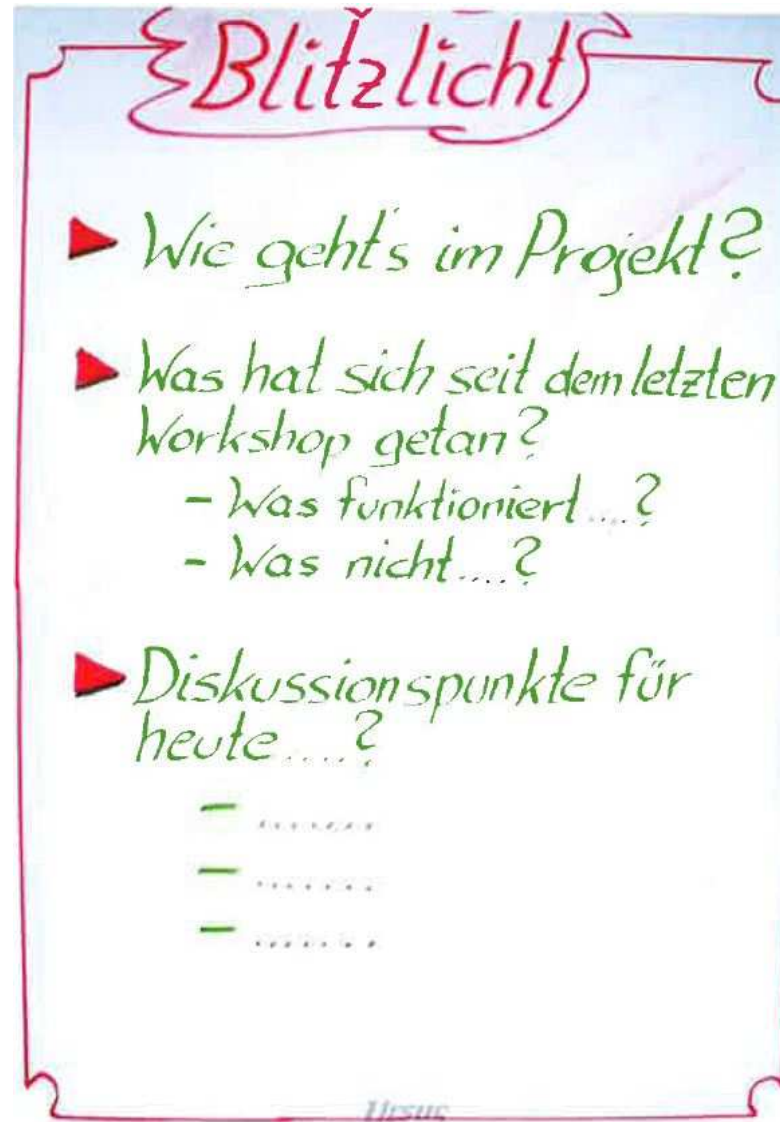 Blitzlicht
Wie geht's im Projekt?
Was hat sich seit dem letzten
Workshop getan?
- Was funktioniert....?
- Was nicht....?
Diskussionspunkte für
heute....?
- .......
- .......
- .......